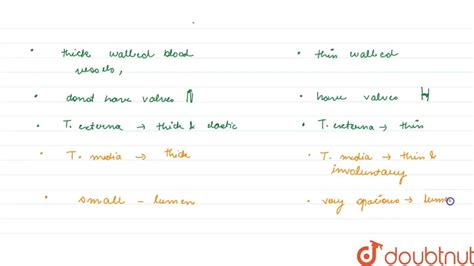 • thick walled blood
vessels,
• thin walled
• donot have valves
• have valves
• T. externa → thick & elastic
• T. externa → thin
• T. media → thick
• T. media → thin &
involuntary
• small - lumen
• very spacious → lumen
doubtnut